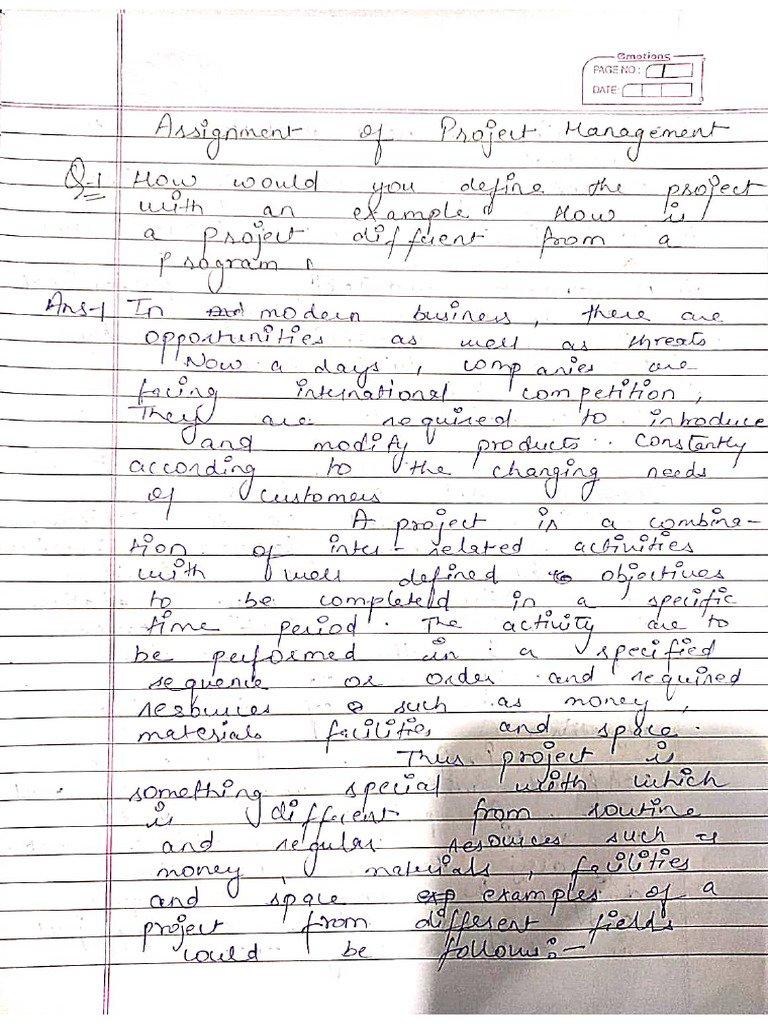 Emotions
PAGE NO.: 1
DATE:
Assignment of Project Management
Q-1 How would you define the project
with an example. How is
a project different from a
program
Ans-1 In modern business, there are
opportunities as well as threats
Now a days, companies are
facing international competition,
They are required to introduce
and modify products. Constantly
according to the changing needs
of customers
A project is a combina-
tion of inter-related activities
with well defined objectives
to be completed in a specific
time period. The activity are to
be performed in a specified
sequence or order and required
resources such as money,
materials facilities and space.
Thus project is
something special with which
is different from routine
and regular resources such as
money, materials, facilities
and space examples of a
project from different fields
could be follows:-